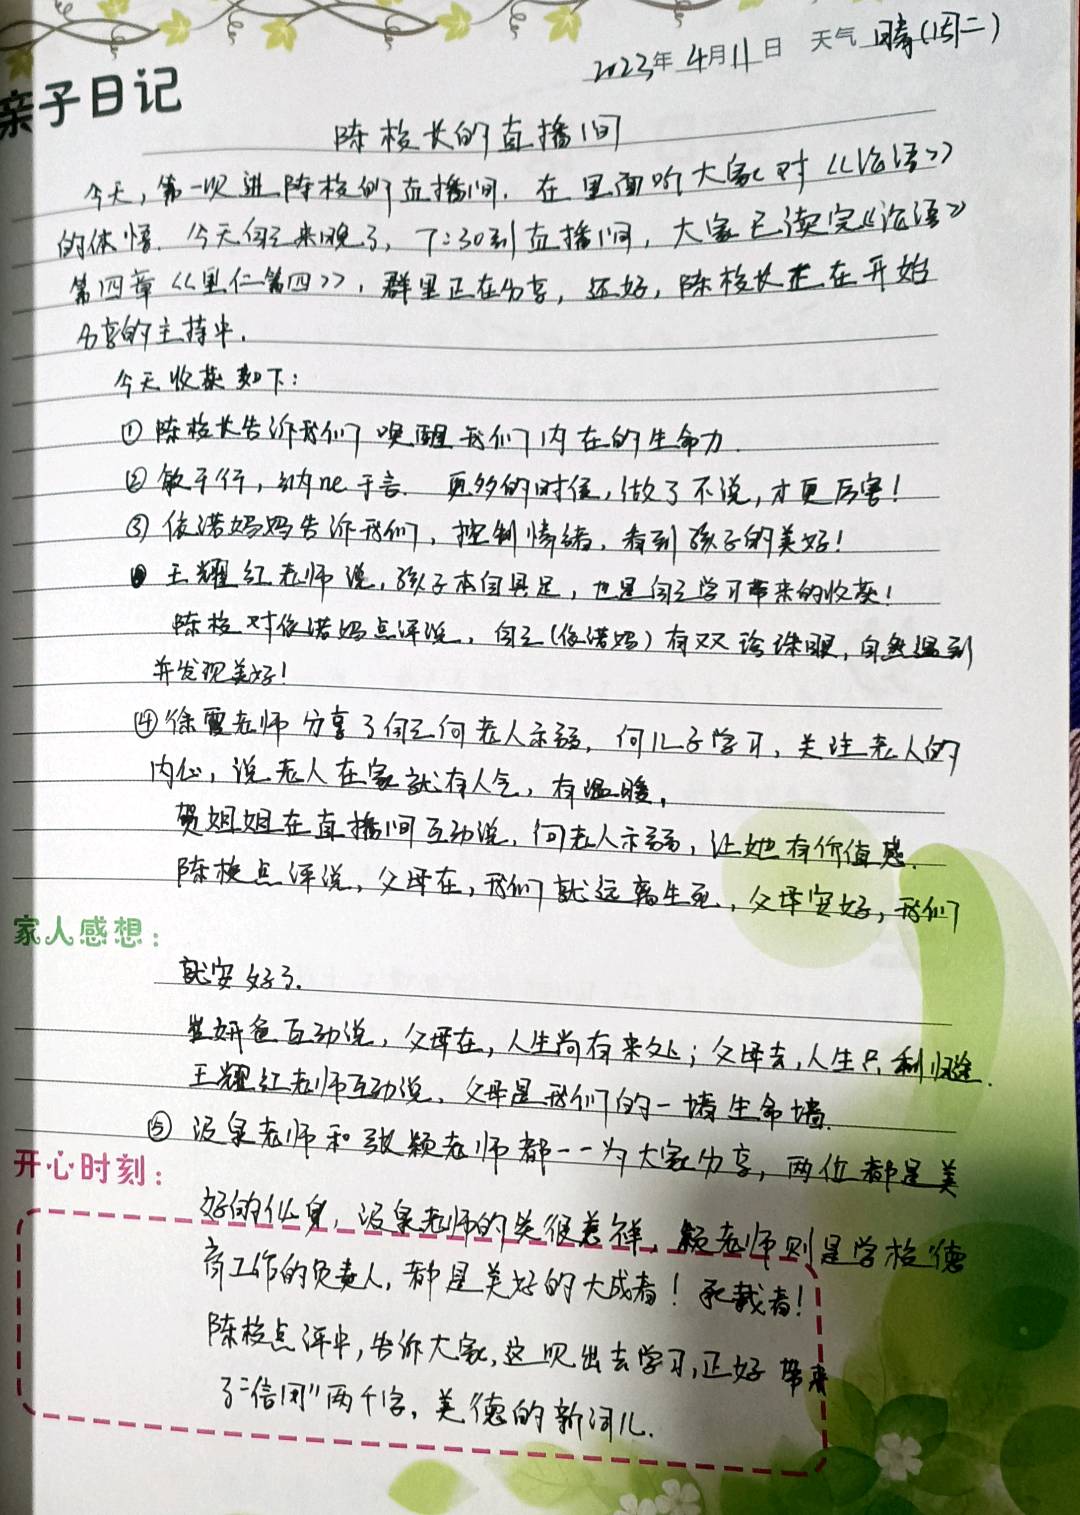 2023年4月11日 天气 晴(周二)
亲子日记
陈校长的直播间
今天,第一次进陈校的直播间.在里面听大家对《论语》
的体悟.今天自己来晚了,7:30到直播间,大家已读完《论语》
第四章《里仁第四》,群里正在分享,还好,陈校长正在开始
分享的主持中.
今天收获如下:
①陈校长告诉我们唤醒我们内在的生命力.
②敏于行,纳ne于言.更多的时侯,做了不说,才更厉害!
③依诺妈妈告诉我们,控制情绪,看到孩子的美好!
王耀红老师说,孩子本自具足,也是自己学习带来的收获!
陈校对依诺妈点评说,自己(依诺妈)有双珍珠眼,自然遇到
并发现美好!
④徐霞老师分享了自己向老人示弱,向儿子学习,关注老人的
内心,说老人在家就有人气,有温暖,
贺姐姐在直播间互动说,向老人示弱,让她有价值感.
陈校点评说,父母在,我们就远离生死,父母安好,我们
家人感想:
就安好了.
妍爸互动说,父母在,人生尚有来处;父母去,人生只剩归途.
王耀红老师互动说,父母是我们的一堵生命墙.
⑤汲泉老师和张颖老师都一一为大家分享,两位都是美
开心时刻:
好的化身,汲泉老师的笑很慈祥,颖老师则是学校德
育工作的负责人,都是美好的大成者!承载者!
陈校点评中,告诉大家,这次出去学习,正好带来
了"信用"两个字,美德的新词儿.